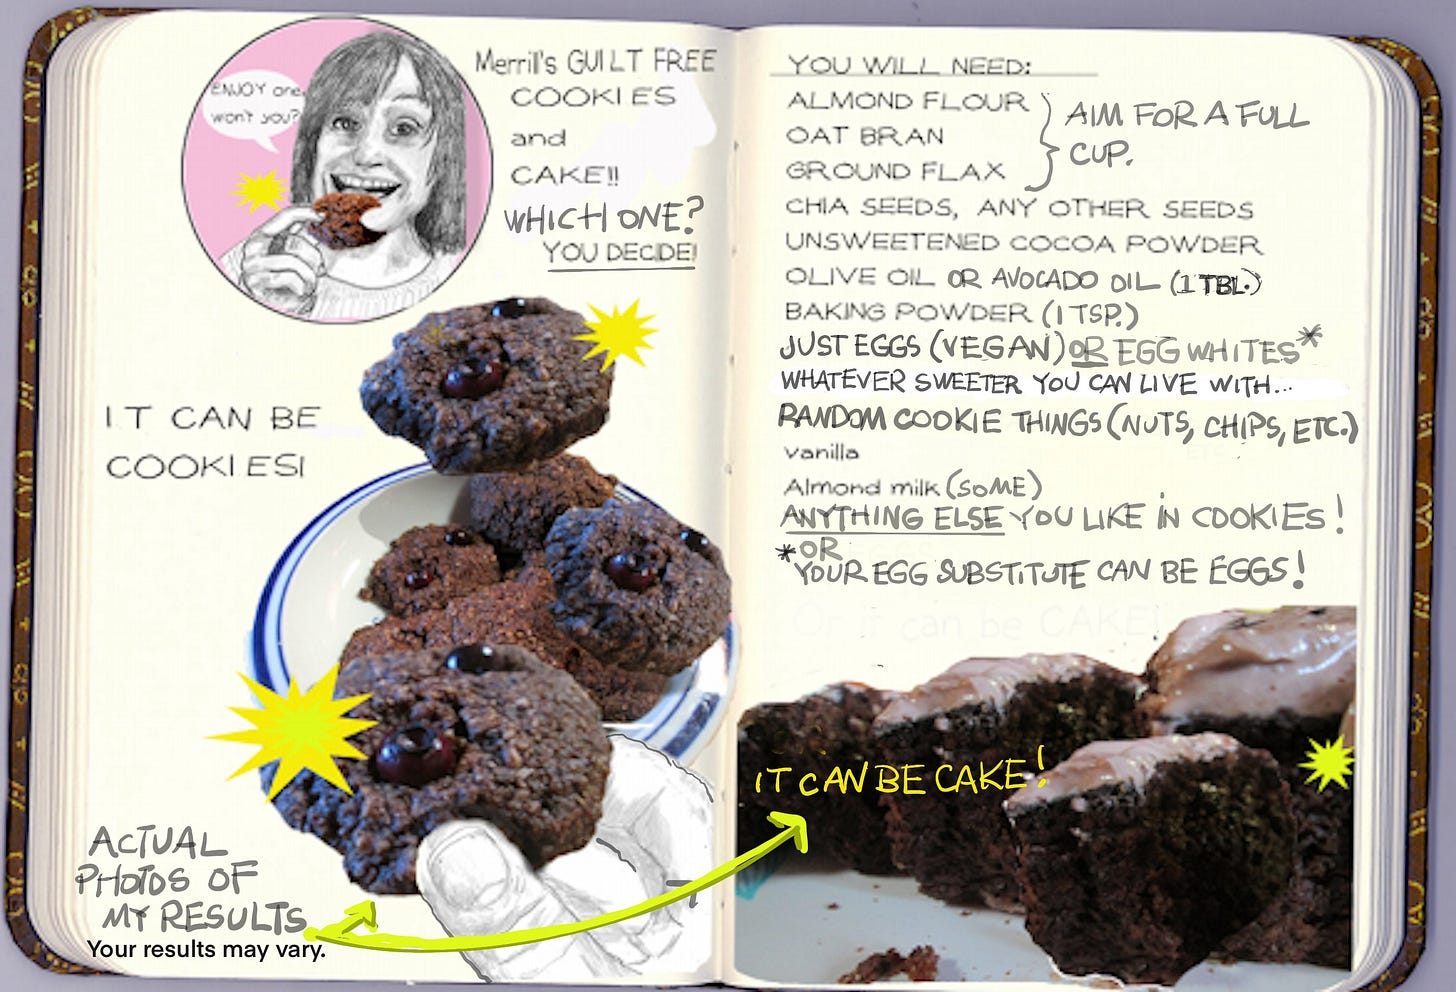 ENJOY one,
won't you?
Merrill's GUILT FREE
COOKIES
and
CAKE!!
WHICH ONE?
YOU DECIDE!
IT CAN BE
COOKIES!
ACTUAL
PHOTOS OF
MY RESULTS
Your results may vary.
YOU WILL NEED:
ALMOND FLOUR
OAT BRAN
GROUND FLAX
AIM FOR A FULL
CUP.
CHIA SEEDS, ANY OTHER SEEDS
UNSWEETENED COCOA POWDER
OLIVE OIL OR AVOCADO OIL (1 TBL.)
BAKING POWDER (1 TSP.)
JUST EGGS (VEGAN) OR EGG WHITES*
WHATEVER SWEETER YOU CAN LIVE WITH...
RANDOM COOKIE THINGS (NUTS, CHIPS, ETC.)
vanilla
Almond milk (SOME)
ANYTHING ELSE YOU LIKE IN COOKIES!
*OR
YOUR EGG SUBSTITUTE CAN BE EGGS!
Or it can be CAKE!
IT CAN BE CAKE!